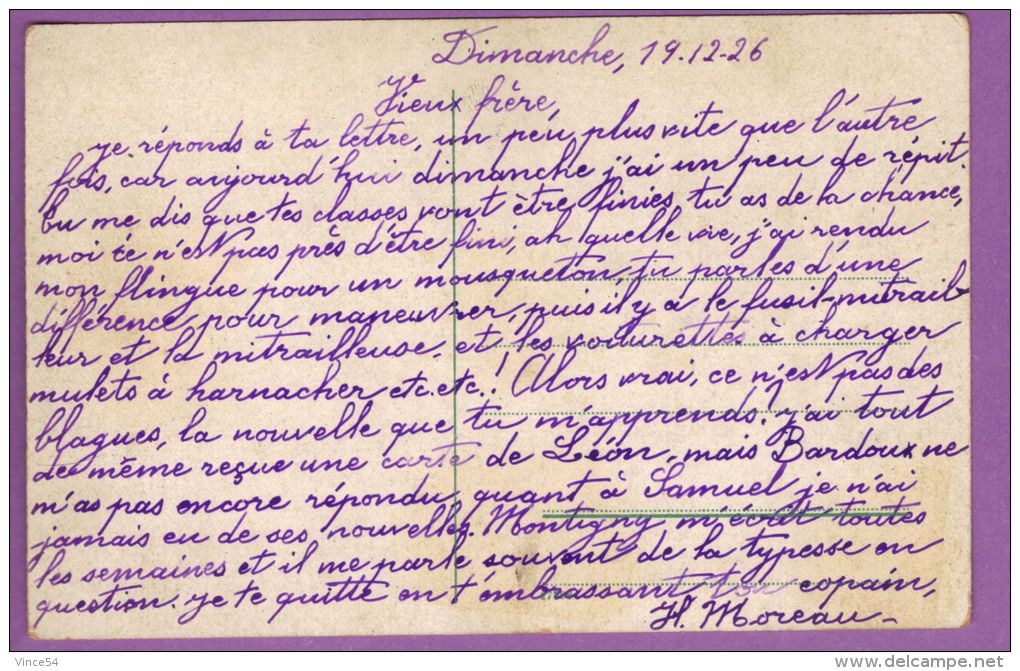 Dimanche, 19.12-26
Vieux frère,
je réponds à ta lettre, un peu plus vite que l'autre
fois, car aujourd'hui dimanche j'ai un peu de répit.
tu me dis que tes classes vont être finies, tu as de la chance,
moi ce n'est pas près d'être fini, ah quelle vie, j'ai rendu
mon flingue pour un mousqueton, tu parles d'une
différence pour maneuvrer, puis il y a le fusil-mitrail
leur et la mitrailleuse, et les voiturettes à charger
mulets à harnacher etc. etc.! Alors vrai, ce n'est pas des
blagues, la nouvelle que tu m'apprends? j'ai tout
de même reçue une carte de Léon, mais Bardoux ne
m'as pas encore répondu, quant à Samuel je n'ai
jamais eu de ses nouvelles. Montigny m'écrit toutes
les semaines et il me parle souvent de la typesse en
question. je te quitte en t'embrassant ton copain,
H. Moreau -
Vince54
http://www.delcampe.net